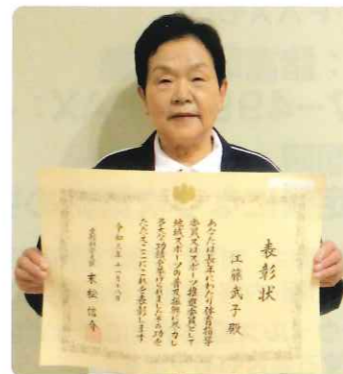 表彰状
江藤武子殿
あなたは長年にわたり体育指導
委員又はスポーツ推進委員として
地域スポーツの普及振興に尽力し
多大な功績を挙げられましたその功を
たたえここにこれを表彰します
令和三年十一月十八日
文部科学大臣 末松信介